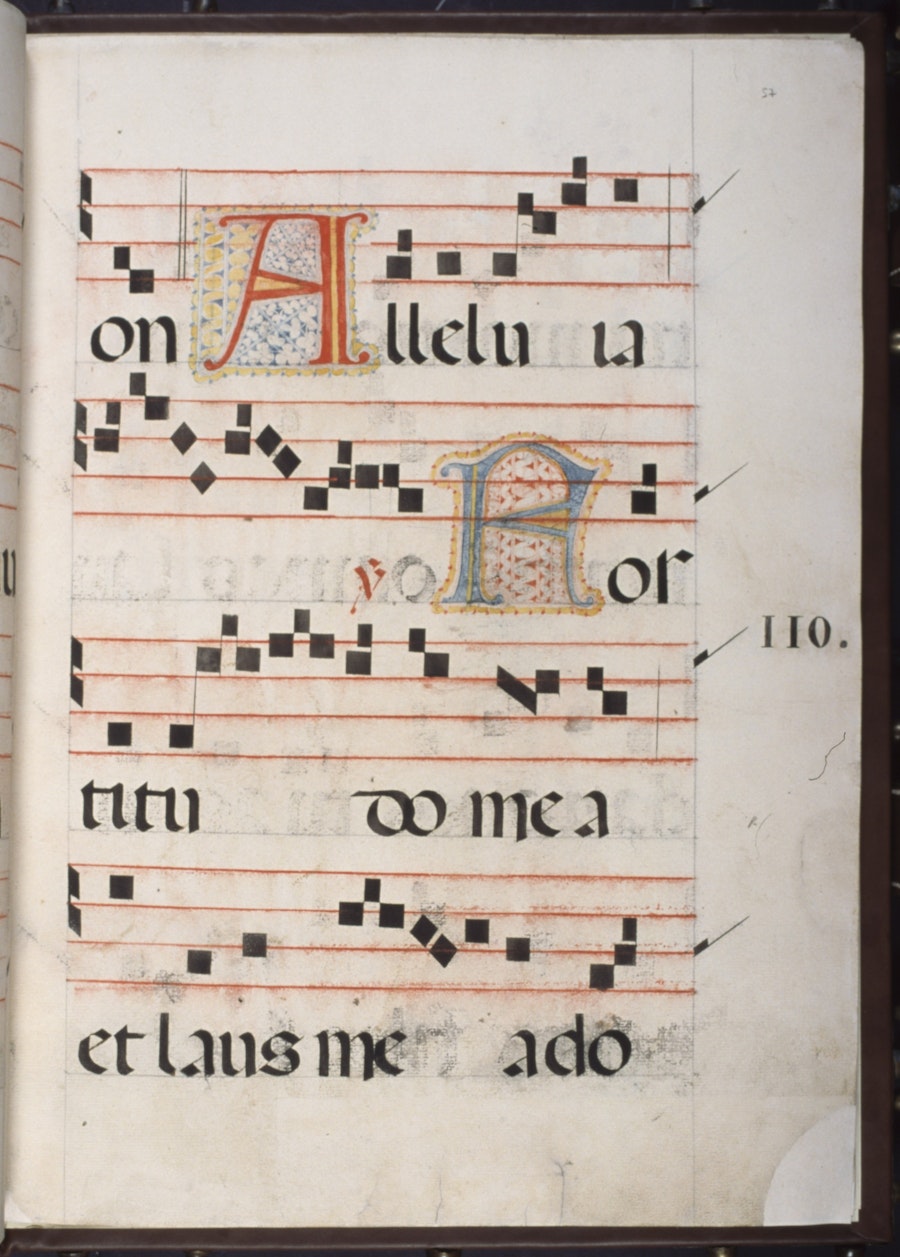 57
on Allelu ia
℣ For
110.
titu do me a
et laus me a do